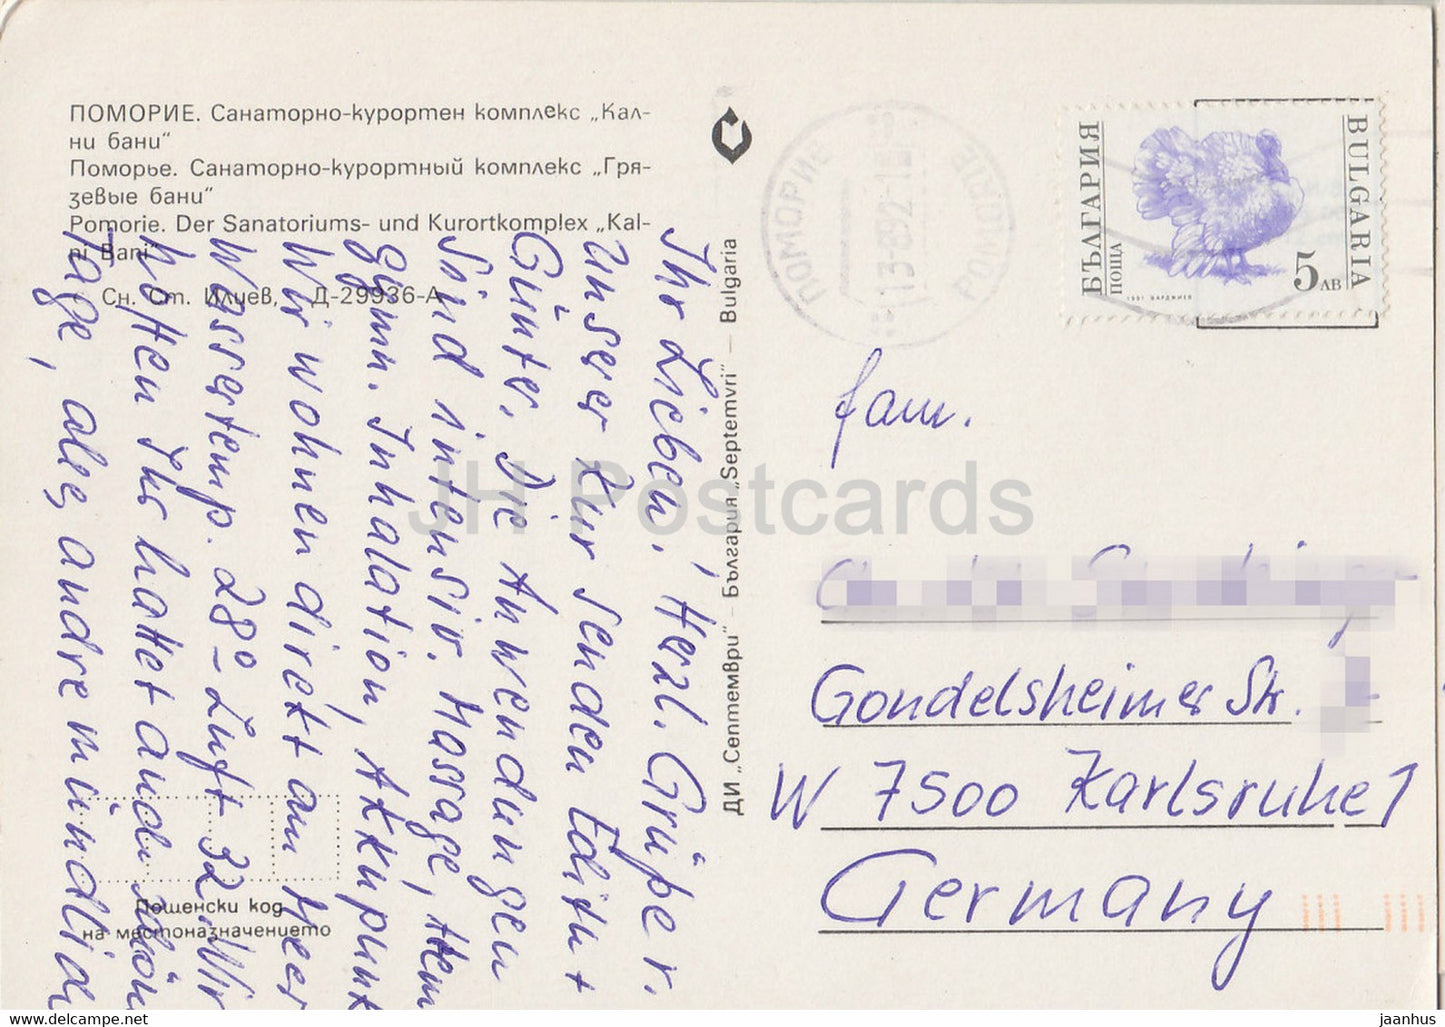 ПОМОРИЕ. Санаторно-курортен комплекс „Кал-
ни бани“
Поморье. Санаторно-курортный комплекс „Гря-
зевые бани“
Pomorie. Der Sanatoriums- und Kurortkomplex „Kal-
ni Bani“
Сн. Ст. Илиев, Д-29936-А
Ihr Lieben! Herzl. Grüße v.
unserer Kur senden Edith +
Günter. Die Anwendungen
sind intensiv. Massage, Hem
gymn. Inhalation, Akkupunkt
Wir wohnen direkt am Meer
Wassertemp. 28°-Luft 32. Wir
hoffen Ihr hattet auch schön
Tage, alles andre mündlich
ДИ „Септември“ – България „Septemvri“ – Bulgaria
ПОМОРИЕ
13-8 92-1
POMORIE
БЪЛГАРИЯ
ПОЩА
BULGARIA
5 ЛВ
1991 ВАРДЖИЕВ
Fam.
Gondelsheimer Str.
W 7500 Karlsruhe 1
Germany
Пощенски код
на местоназначението
JH Postcards
www.delcampe.net
jaanhus